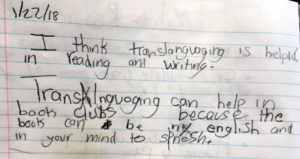 1/22/18
I think translanguaging is helpful
in reading and writing.
Translnguaging can help in
book clubs because the
book can be in english and
in your mind to spnesh.